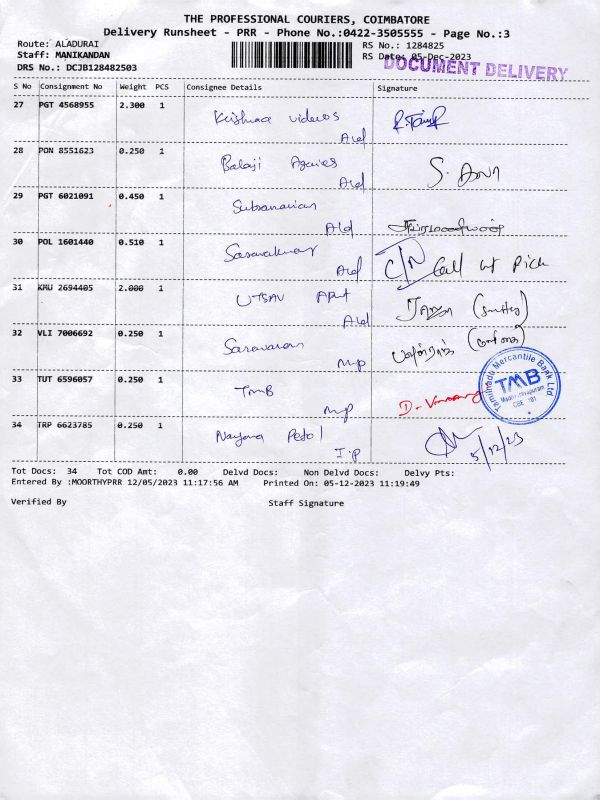 THE PROFESSIONAL COURIERS, COIMBATORE
Delivery Runsheet - PRR - Phone No.:0422-3505555 - Page No.:3
Route: ALADURAI
RS No.: 1284825
Staff: MANIKANDAN
RS Date: 05-Dec-2023
DRS No.: DCJB128482503
DOCUMENT DELIVERY
S No Consignment No Weight PCS Consignee Details Signature
27 PGT 4568955 2.300 1
Krishna videos
Ald
28 PON 8551623 0.250 1
Balaji
Ald
S.
29 PGT 6021091 0.450 1
Ald
30 POL 1601440 0.510 1
Ald
C/N Call not Pick
31 KMU 2694405 2.000 1
UTSAV Apat
Ald
32 VLI 7006692 0.250 1
Saravanan
Mp
33 TUT 6596057 0.250 1
TMB
Mp
Tamilnadu Mercantile Bank Ltd
TMB
CBE
34 TRP 6623785 0.250 1
Nayara Petol
I.p
5/12/23
Tot Docs: 34 Tot COD Amt: 0.00 Delvd Docs: Non Delvd Docs: Delvy Pts:
Entered By :MOORTHYPRR 12/05/2023 11:17:56 AM Printed On: 05-12-2023 11:19:49
Verified By Staff Signature